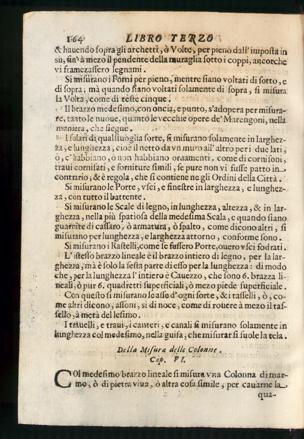 164 LIBRO TERZO
& hauendo sopra gli archetti, ò Volte, per pieno dall'imposta in
sù, sin'à mezo il pendente della muraglia sotto i coppi, ancorche
vi framezassero legnami.
Si misurano i Forni per pieno, mentre siano voltati di sotto, e
di sopra; mà quando siano voltati solamente di sopra, si misura
la Volta, come di teste cinque.
Il brazzo medesimo, con oncia, e punto, s'adopera per misura-
re, tanto le nuoue, quanto le vecchie opere de' Marengoni, nella
maniera, che siegue.
I solari di qualsiuoglia sorte, si misurano solamente in larghez-
za, e lunghezza, cioè il netto da vn muro all'altro per i due lati,
ò, c'habbiano, ò non habbiano ornamenti, come di cornisoni,
traui cornisati, e forniture simili, se pure non vi fusse patto in
contrario, & è regola, che si contiene ne gli Ordini della Città.
Si misurano le Porte, vsci, e finestre in larghezza, e lunghez-
za, con tutto il battente.
Si misurano le Scale di legno, in lunghezza, altezza, & in lar-
ghezza, nella più spatiosa della medesima Scala, e quando siano
guarnite di cassaro, ò armatura, ò spalto, come dicono altri, si
misurano per lunghezza, e larghezza attorno, conforme sono.
Si misurano i Rastelli, come se fussero Porte, ouero vsci fodrati.
L'istesso brazzo lineale è il brazzo intiero di legno, per la lar-
ghezza, mà è solo la sesta parte di esso per la lunghezza: di modo
che, per la lunghezza l'intiero è Cauezzo, che sono 6. brazza li-
neali, ò pur 6. quadretti superficiali, ò mezo piede superficiale.
Con questo si misurano le asse d'ogni sorte, & i tasselli, ò, co-
me altri dicono, assoni, si di noce, come di rouere à mezo il tas-
sello, à metà del lesimo.
I trauelli, e traui, i canteri, e canali si misurano solamente in
lunghezza col medesimo, nella guisa, che misurar si suole la tela.
Della Misura delle Colonne.
Cap. VI.
COl medesimo brazzo lineale si misura vna Colonna di mar-
mo, ò di pietra viua, ò altra cosa simile, per cauarne la
qua-